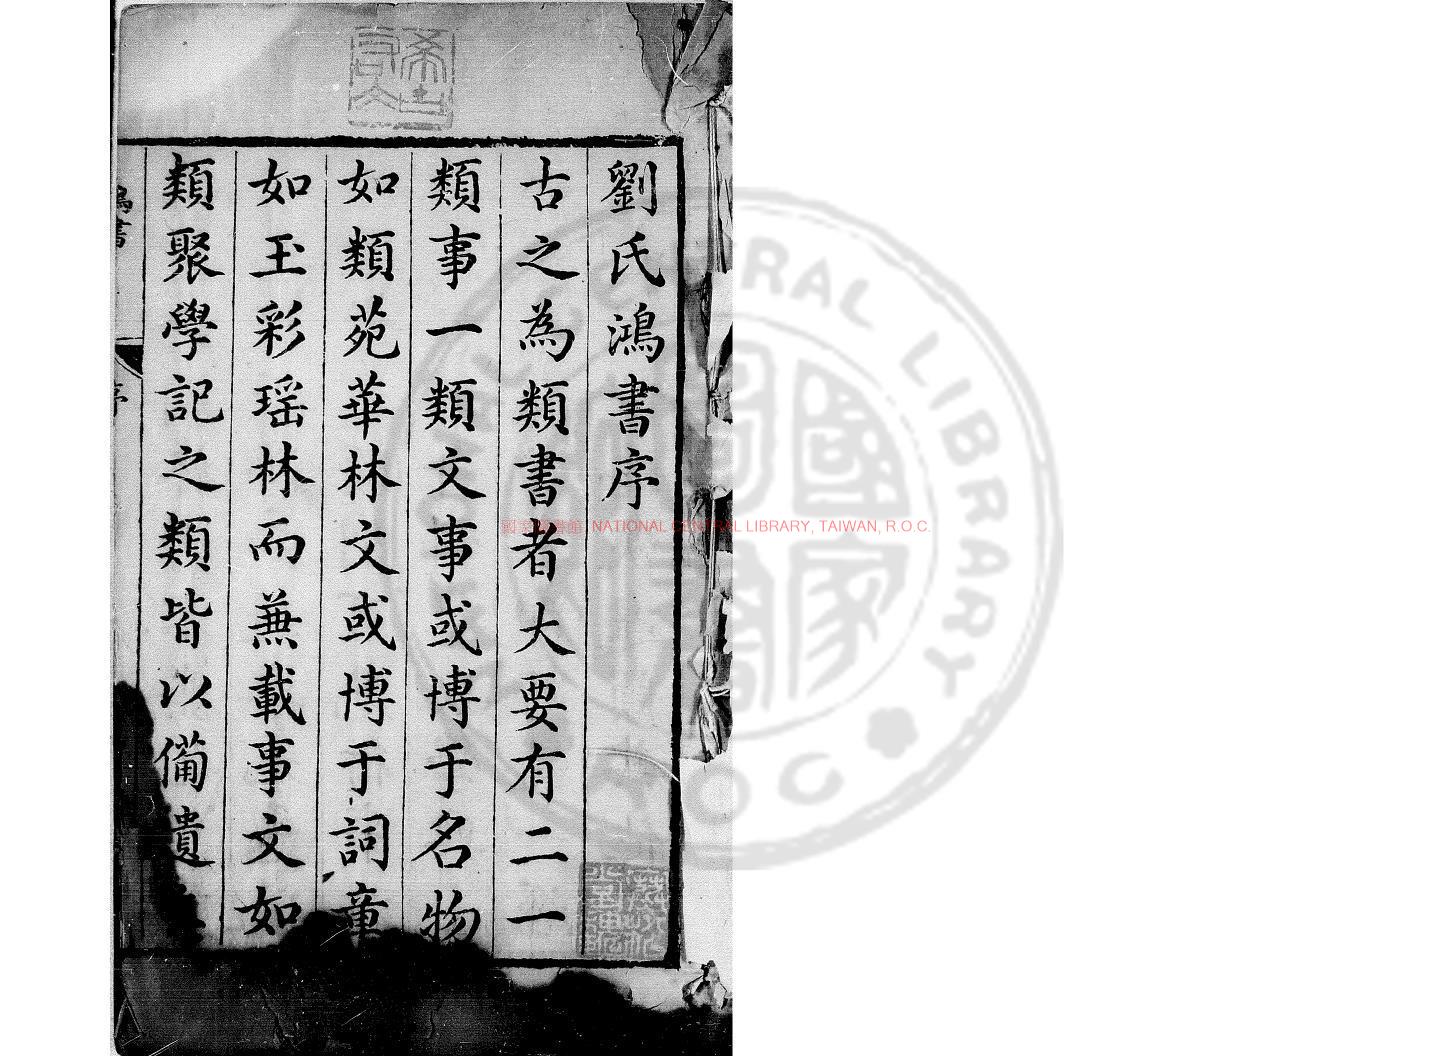 劉氏鴻書序
古之為類書者大要有二一
類事一類文事或博于名物
如類苑華林文或博于詞章
如玉彩瑶林而兼載事文如
類聚學記之類皆以備遺
鴻書
序
國家圖書館 NATIONAL CENTRAL LIBRARY, TAIWAN, R.O.C.